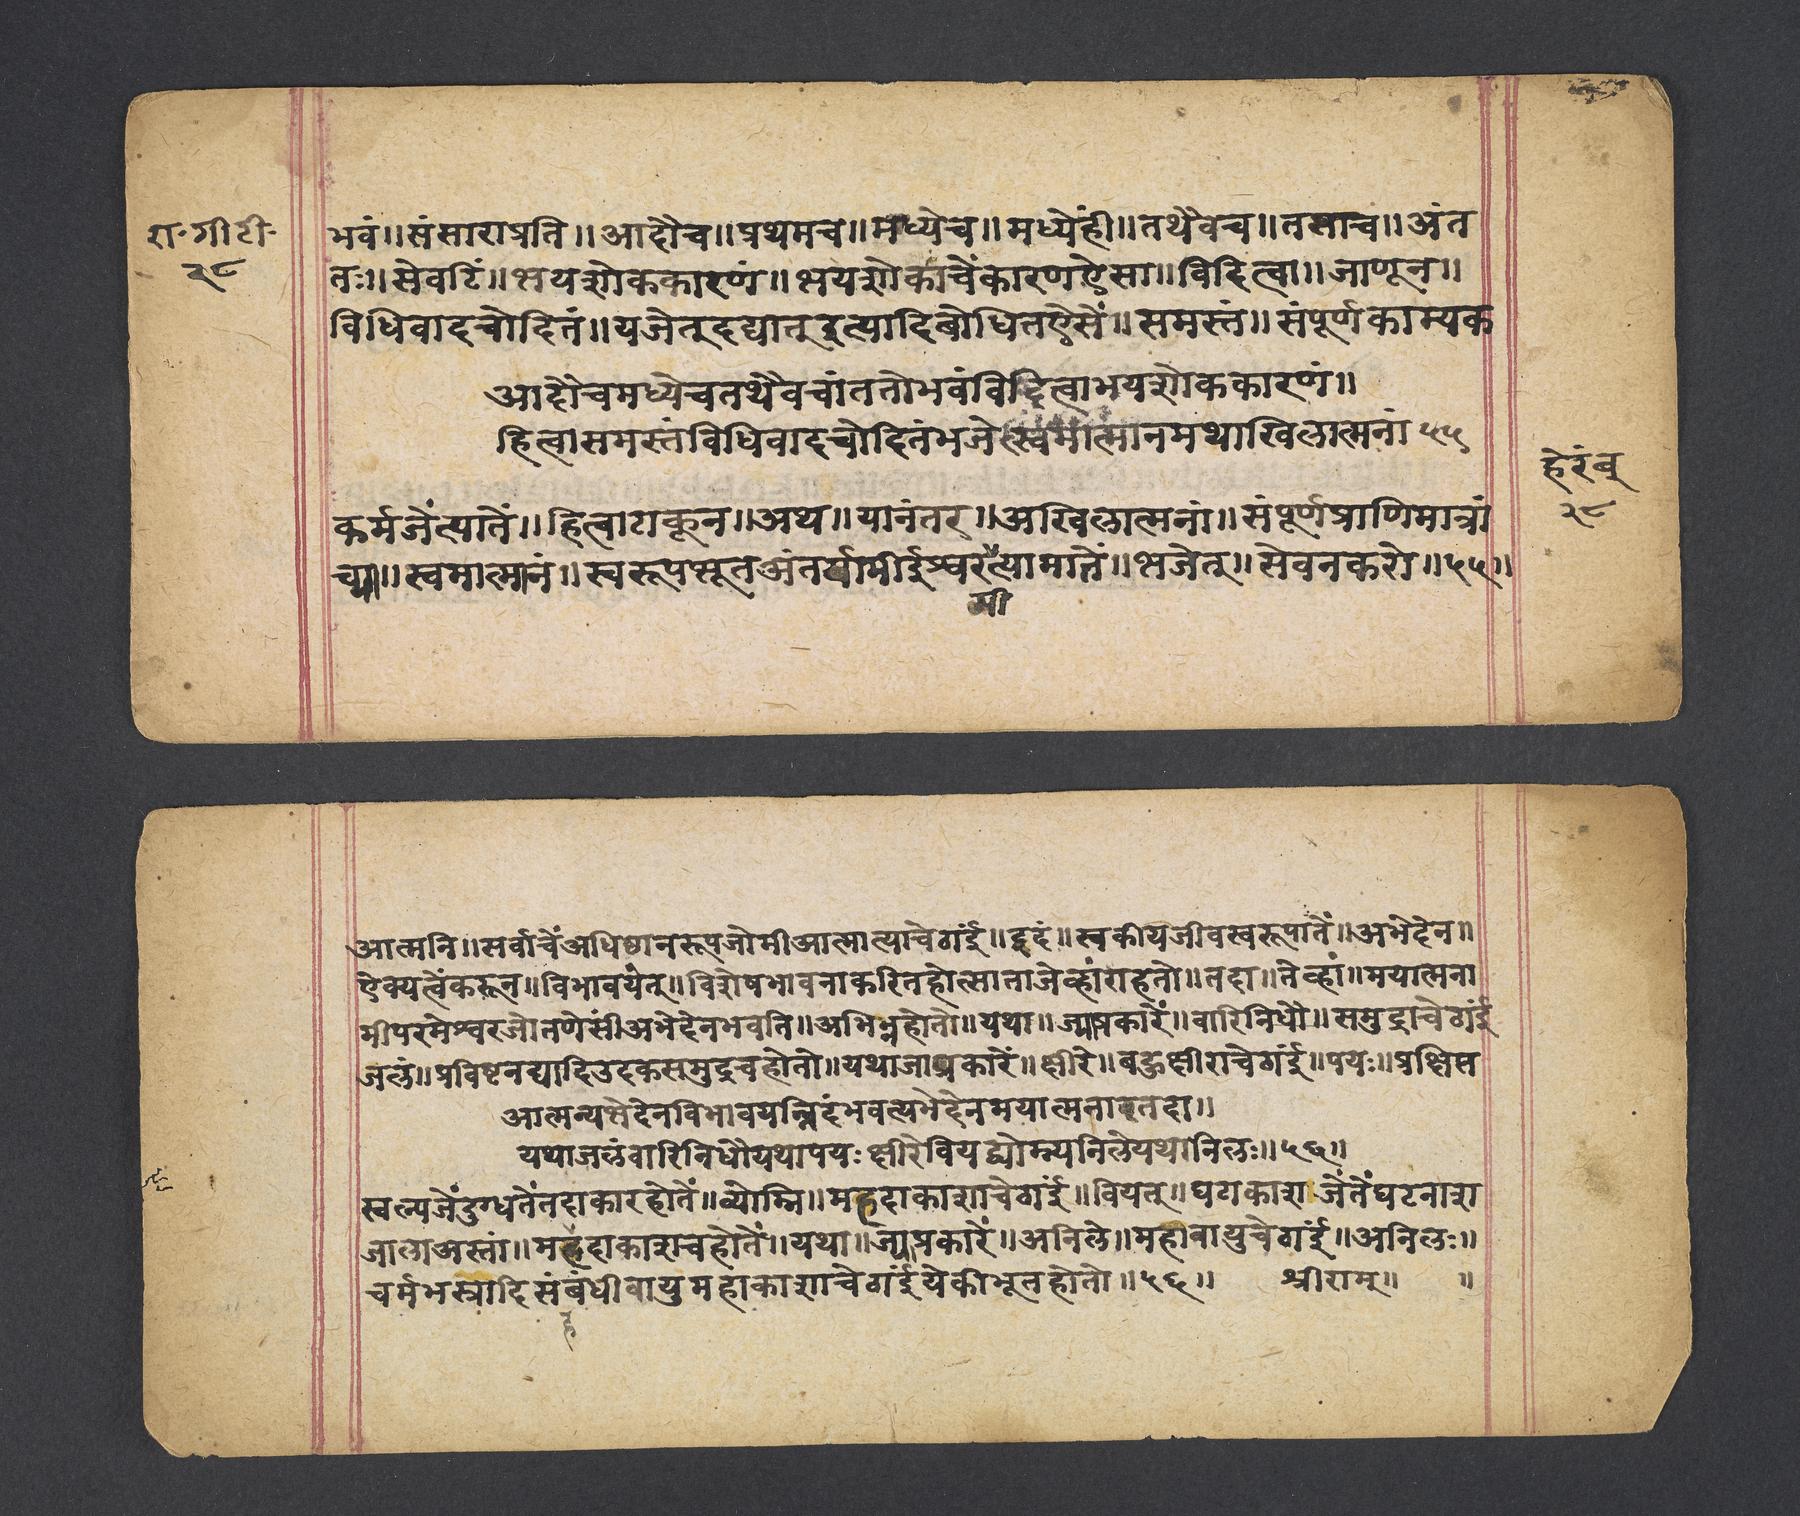 रा॰ गी टी॰
२८
भवं॥ संसाराप्रति॥ आदौच॥ प्रथमच॥ मध्येच॥ मध्येंही॥ तथैवच॥ तसाच॥ अंत
तः॥ सेवटिं॥ भयशोककारणं॥ भयशोकाचेंकारणऐसा॥ विदित्वा॥ जाणून॥
विधिवादचोदितं॥ यजेत्दद्यात्इत्यादिबोधितऐसें॥ समस्तं॥ संपूर्णकाम्यक
आदौचमध्येचतथैवचांततोभवंविदित्वाभयशोककारणं॥
हित्वासमस्तंविधिवादचोदितंभजेत्स्वमात्मानमथाखिलात्मनां ५५
हेरंब
२८
कर्मजेंत्यातें॥ हित्वाटाकून॥ अथ॥ यानंतर॥ अखिलात्मनां॥ संपूर्णप्राणिमात्रां
च्या॥ स्वमात्मानं॥ स्वरूपभूतअंतर्यामीईश्वरत्यामातें॥ भजेत्॥ सेवनकरो॥ ५५॥
मी
आत्मनि॥ सर्वाचेंअधिष्ठानरूपजोमीआत्मात्याचेठाईं॥ इदं॥ स्वकीयजीवस्वरूपातें॥ अभेदेन॥
ऐक्यत्वेंकरून॥ विभावयंत्॥ विशेषभावनाकरितहोत्साताजेव्हांराहतो॥ तदा॥ तेव्हां॥ मयात्मना
मीपरमेश्वरजोतणेसींअभेदेनभवति॥ अभिन्नहोतो॥ यथा॥ ज्याप्रकारें॥ वारिनिधौ॥ समुद्राचेठाईं
जलं॥ प्रविष्टनद्यादिउदकसमुद्रचहोतो॥ यथाजाप्रकारें॥ क्षीरे॥ बहुक्षीराचेठाईं॥ पयः॥ प्रक्षिप्त
आत्मन्यभेदेनविभावयन्निदंभवत्यभेदेनमयात्मनातदा॥
यथाजलंवारिनिधौयथापयः क्षीरेवियद्व्योम्न्यनिलेयथानिलः॥ ५६॥
स्वल्पजेंदुग्धतेंतदाकारहोतें॥ व्योम्नि॥ महदाकाशाचेठाईं॥ वियत्॥ घटाकाश जेंतेंघटनाश
जालाअस्तां॥ महदाकाशचहोतें॥ यथा॥ ज्याप्रकारें॥ अनिले॥ महावायुचेठाईं॥ अनिलः॥
चर्मभस्त्रादिसंबंधीवायुमहाकाशाचेठाईंयेकीभूतहोतो॥ ५६॥ श्रीराम॥ ॥
ह